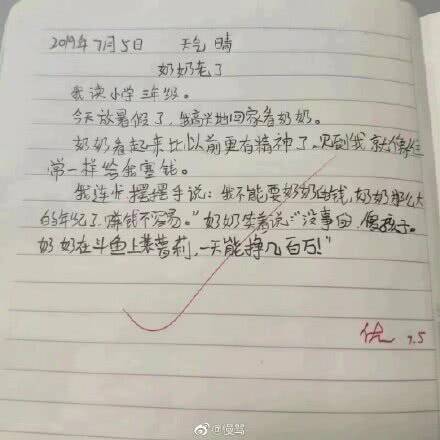 2019年7月5日 天气 晴
奶奶老了
我读小学三年级。
今天放暑假了,我高兴地回家看奶奶。
奶奶看起来比以前更有精神了。见到我就像往
常一样给我塞钱。
我连忙摆摆手说:我不能要奶奶的钱,奶奶那么大
的年纪了,赚钱不容易。"奶奶笑着说:"没事的,傻孩子。
奶奶在斗鱼上装萝莉,一天能挣几百万!"
优 7.5
@慢骂